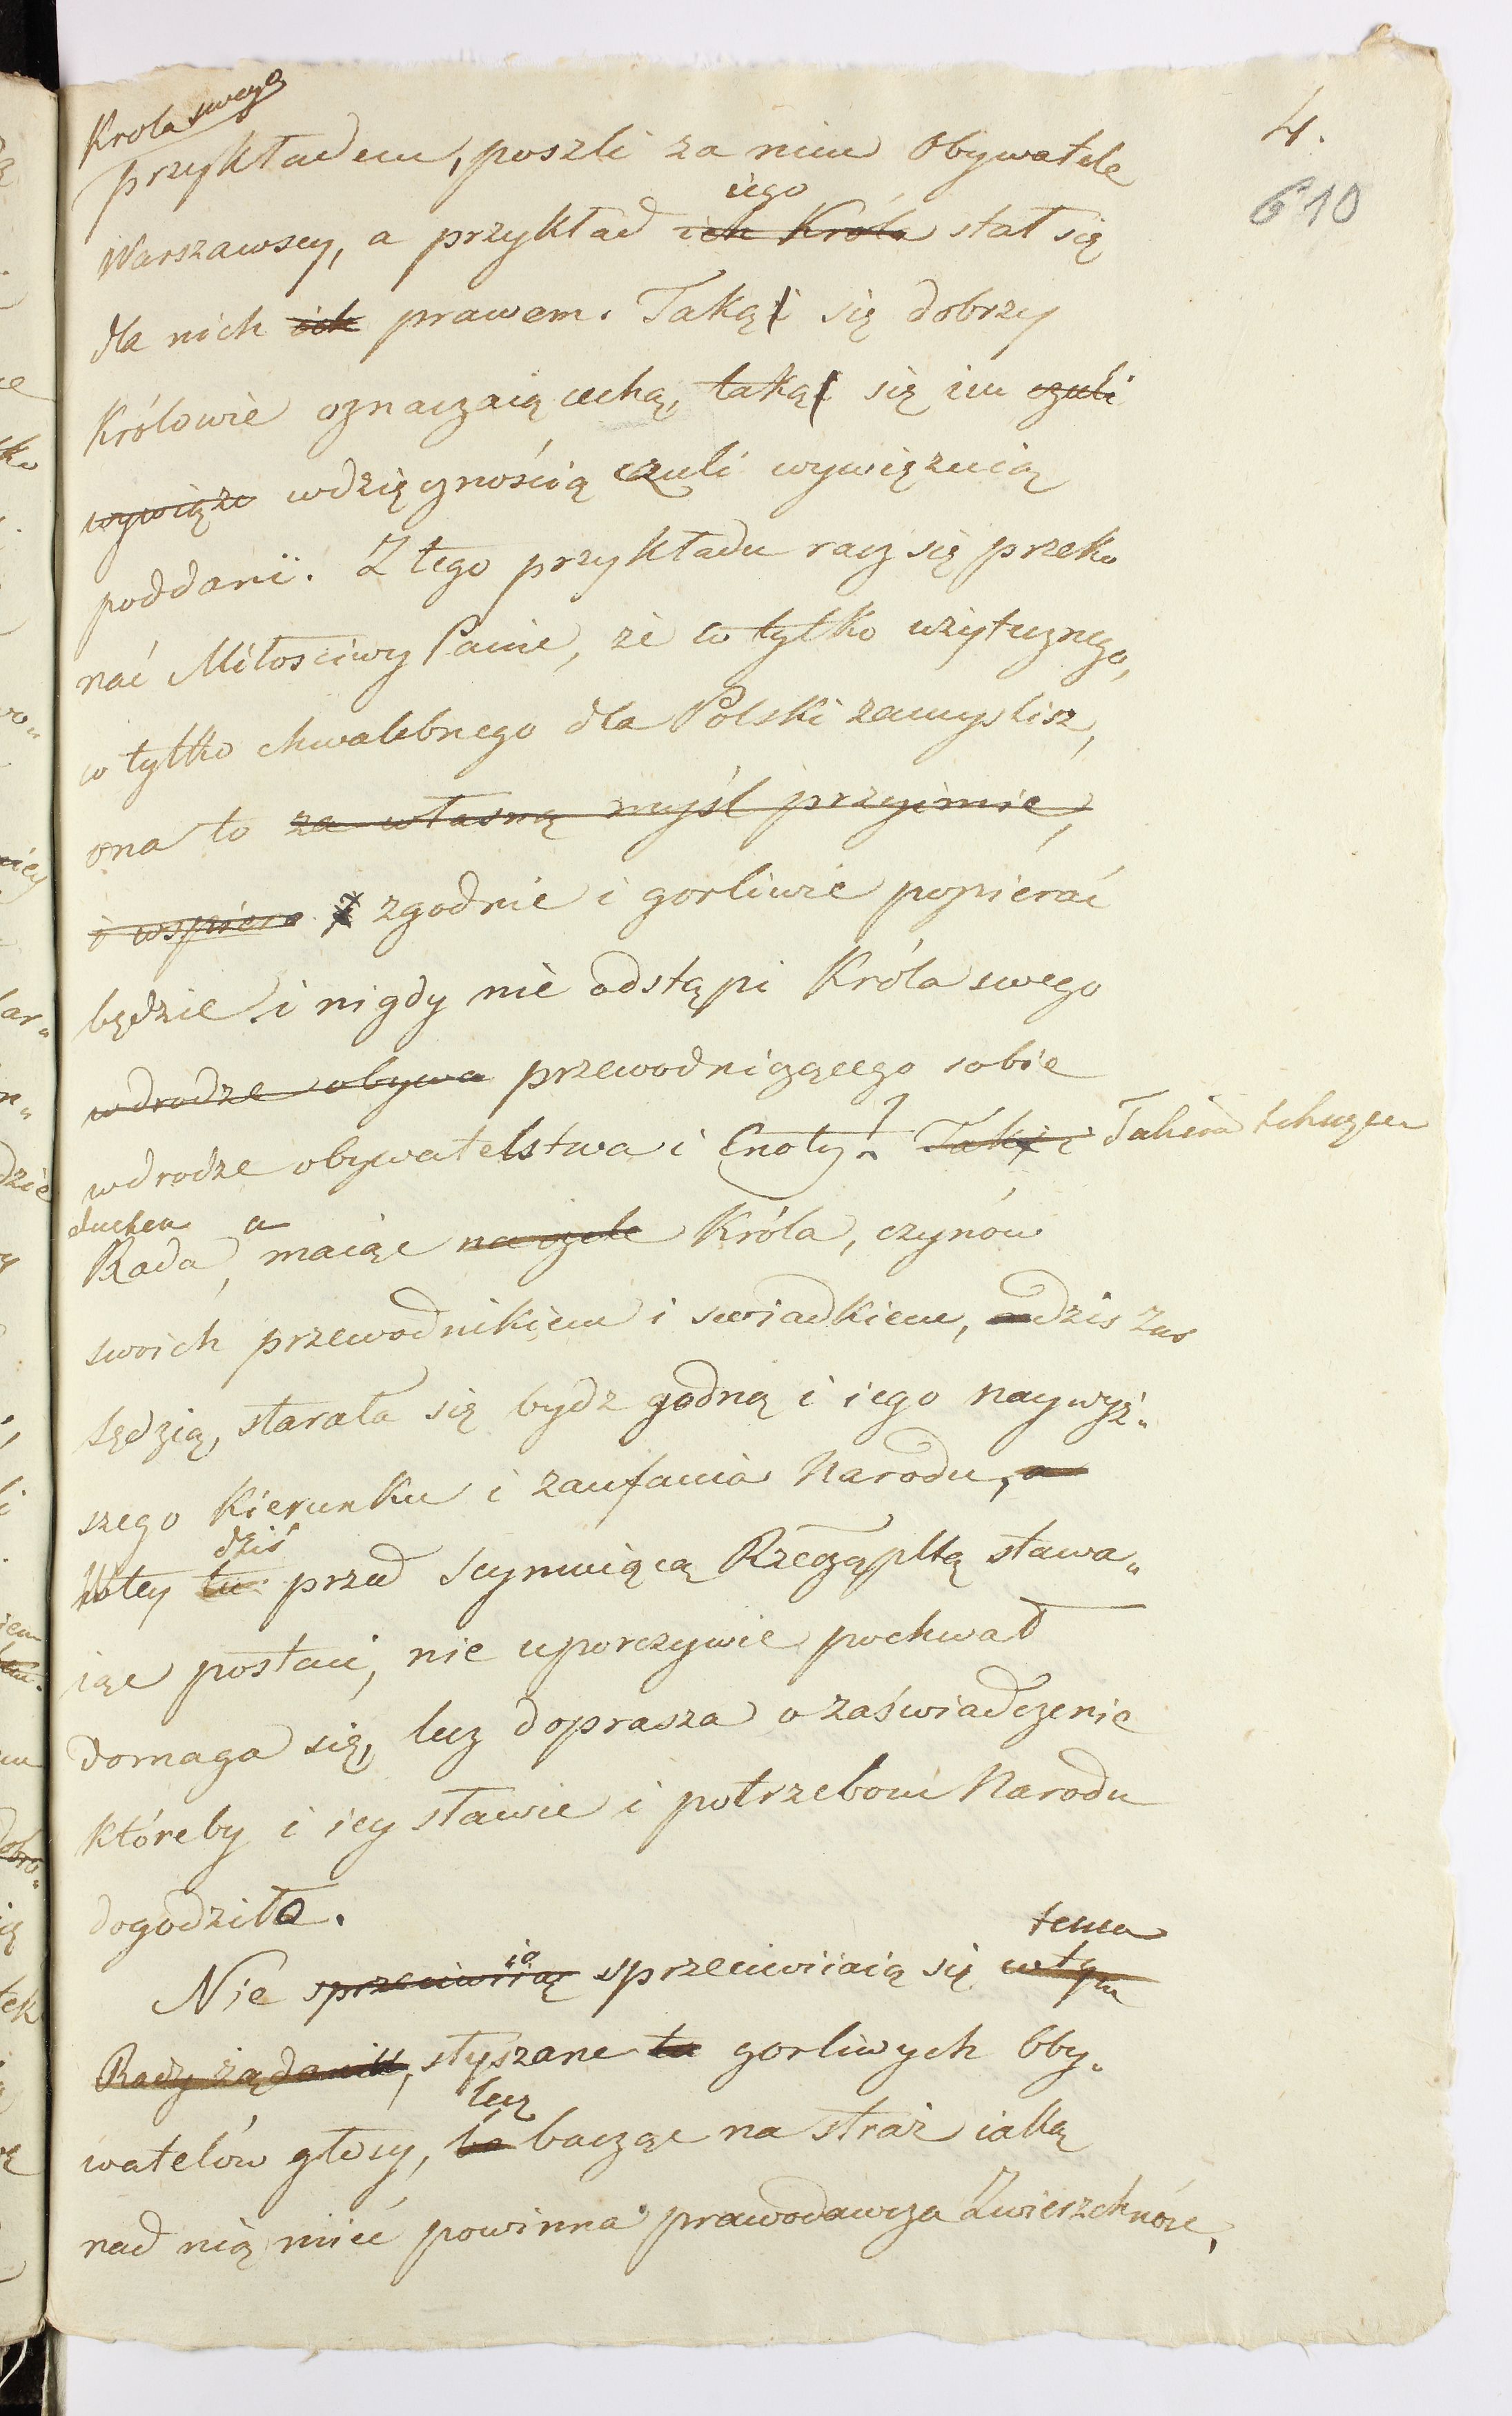 4.
610
Krola swego
przykładem, poszli za nim Obywatele
iego
Warszawscy, a przykład ich Króla stał się
dla nich ich prawem. Taką się dobrzy
Królowie oznaczaią cechą, taką się im czuli
wywięzu wdzięcznością czuli wywięzuią
poddani. Z tego przykładu racz się przeko
nać Miłosciwy Panie, że co tylko użytecznego,
co tylko chwalebnego dla Polski zamyslisz,
ona to za własną myśl przyimie,
i wspiera zgodnie i gorliwie popierać
będzie i nigdy nie odstąpi Króla swego
w drodze obywa przewodniczącego sobie
w drodze obywatelstwa i Cnoty. Taką i Takim tchnąca
duchem a
Rada, maiąc na czele Króla, czynów
swoich przewodnikiem i swiadkiem, dzis zas
sędzią, starała się bydz godną i iego naywyż„
szego Kierunku i zaufania Narodu, a
dziś
W tey tu przed Seymuiącą Rzecząpltą stawa„
iąc postaci, nie uporczywie pochwał
domaga się, lecz doprasza o zaświadczenie
któreby i iey sławie i potrzebom Narodu
dogodziło.
temu
Nie sprzeciwiią sprzeciwiiaią się w tym
Rady żądaniu, słyszane tu gorliwych Oby„
lecz
watelów głosy, bo bacząc na straż iaką
nad nią mieć powinna prawodawcza Zwierzchność,